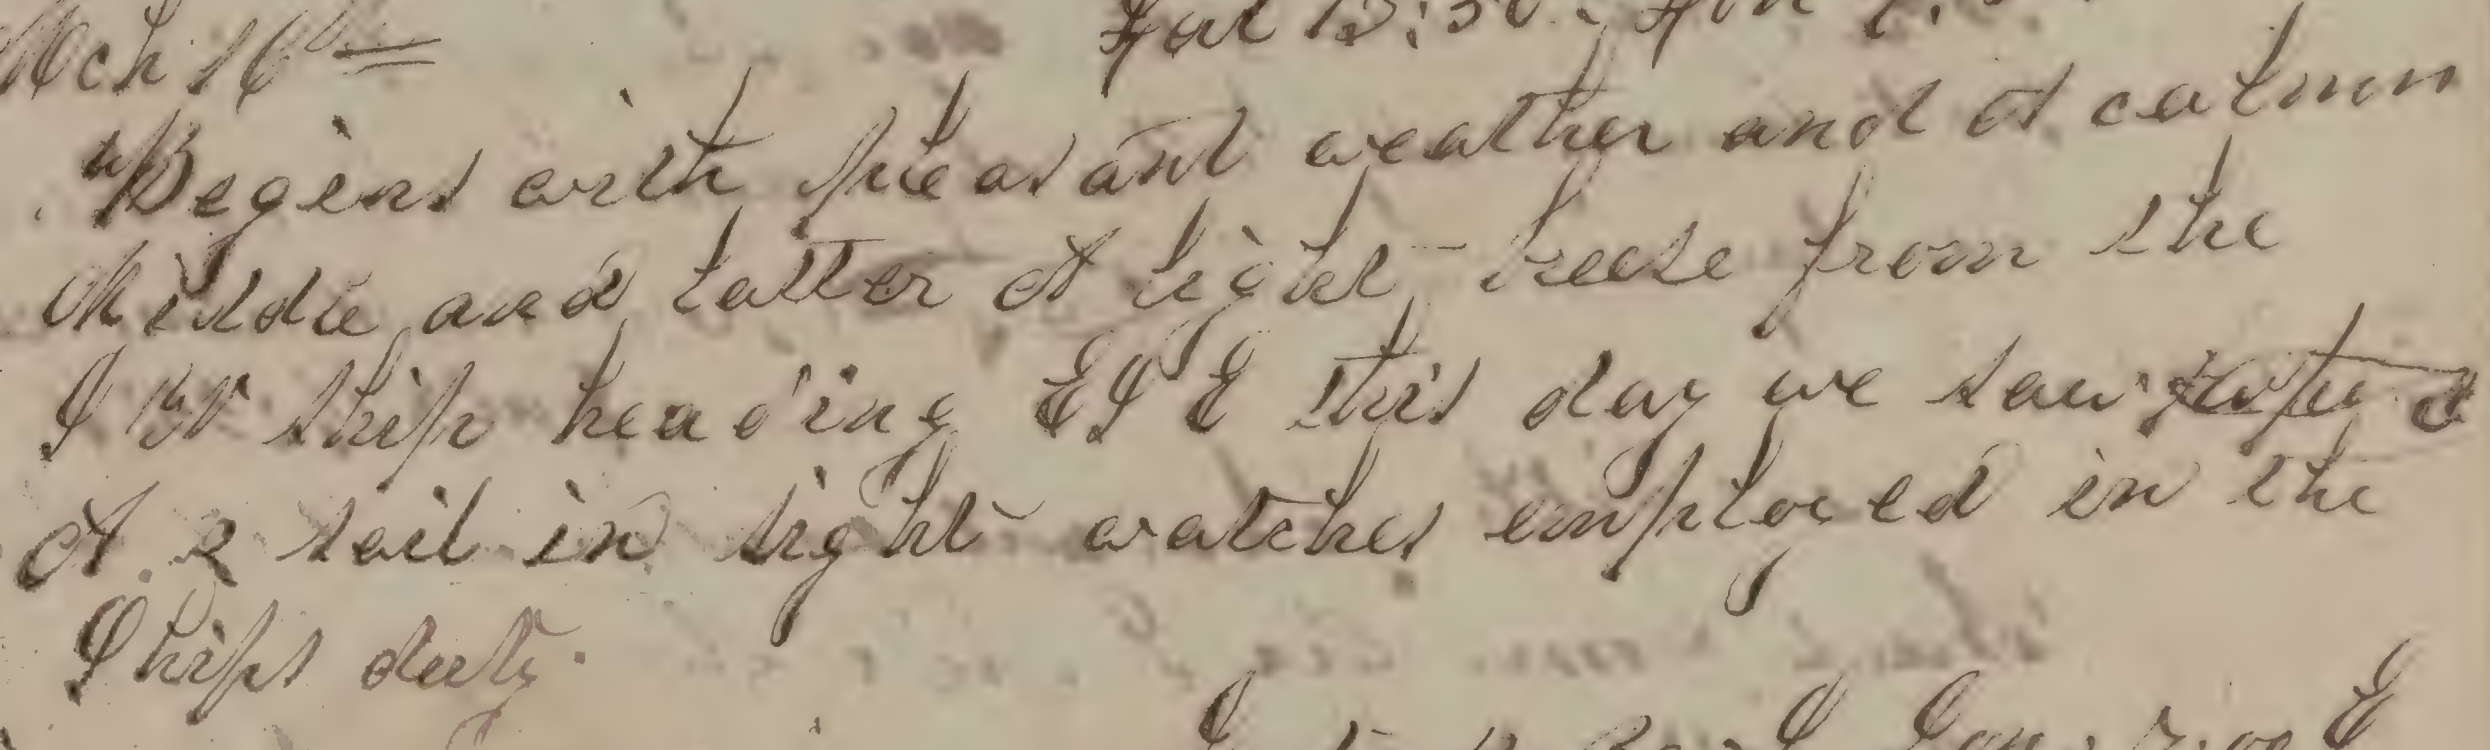 Mch 16th
Begins with pleasant weather and A calm
Middle and latter A light breese from the
S W ship heading E S E this day we saw
A 2 sail in sight watches employed in the
Ships duty.